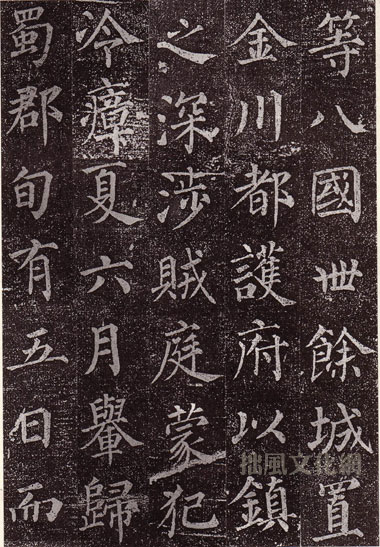 等八國卅餘城置
金川都護府以鎮
之深涉賊庭蒙犯
冷瘴夏六月轝歸
蜀郡旬有五日而
拙風文化網